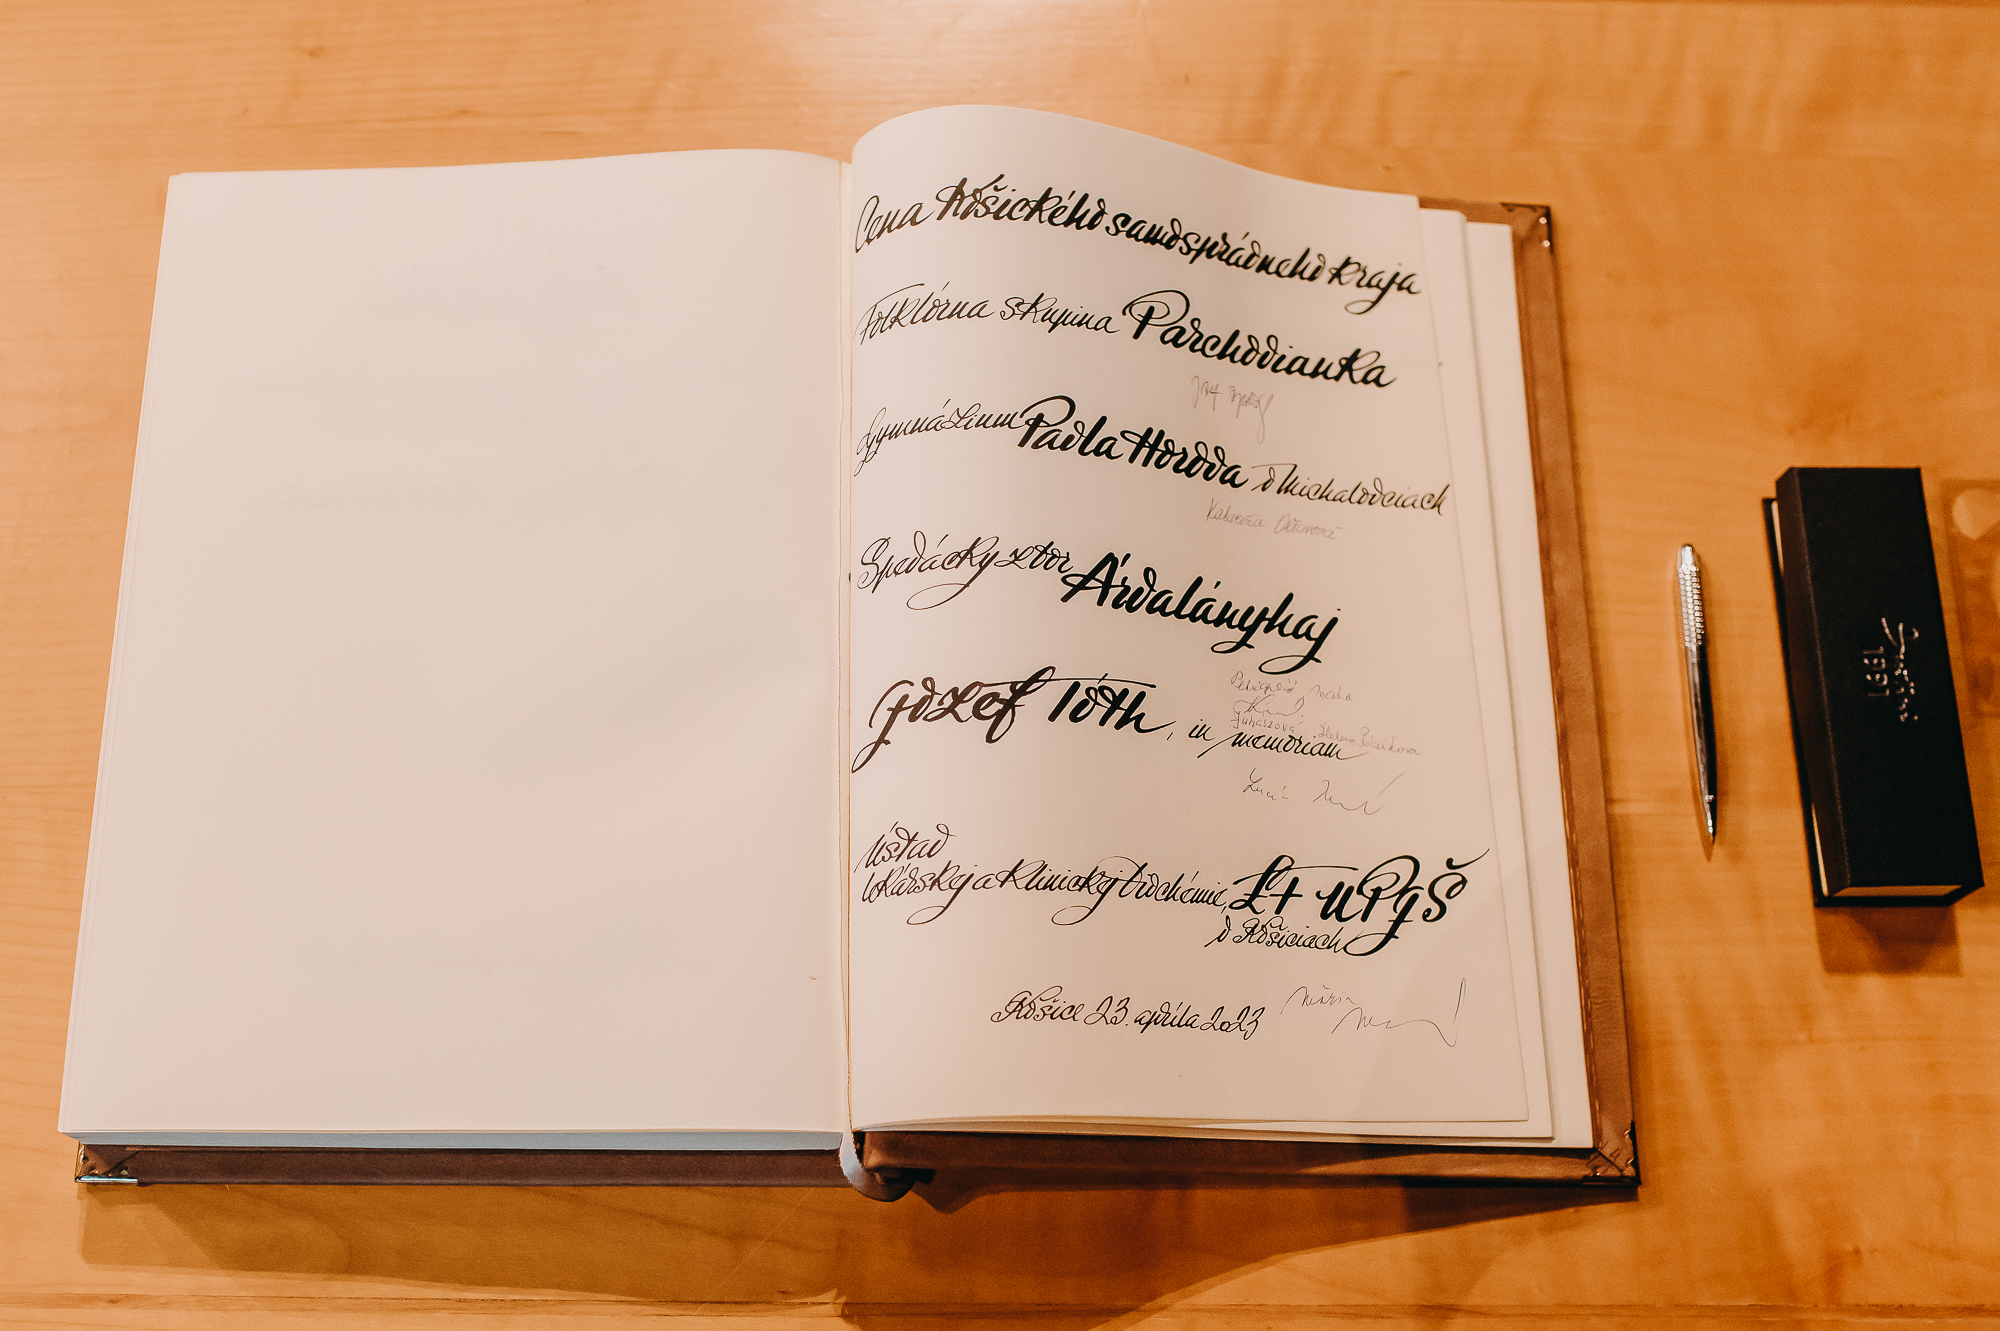 Cena Košického samosprávneho kraja
Folklórna skupina Parchovianka
Gymnázium Pavla Horova v Michalovciach
Katarína
Spevácky zbor Árvalányhaj
József Tóth, in memoriam
Juhászová
Lucia
Ústav
lekárskej a klinickej biochémie, LF UPJŠ
v Košiciach
Košice 23. apríla 2023
Mária